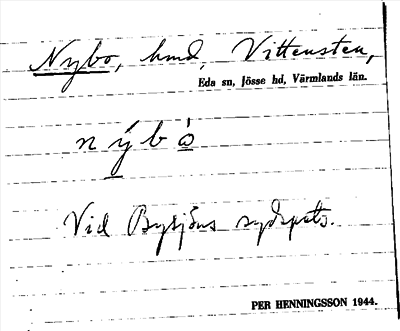 Nybo, hmd, Vittensten,
Eda sn, Jösse hd, Värmlands län.
n ý b ò
Vid Bysjöns sydspets.
PER HENNINGSSON 1944.